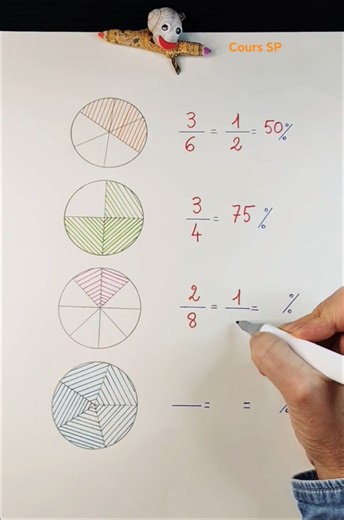 Cours SP
3/6 = 1/2 = 50%
3/4 = 75%
2/8 = 1/ = %
— = = %